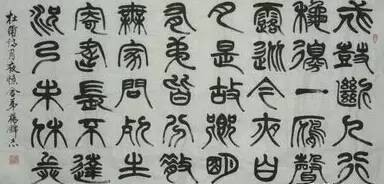 戍鼓斷人行
秋邊一雁聲
露從今夜白
月是故鄉明
有弟皆分散
無家問死生
寄書長不達
況乃未休兵
杜甫詩月夜憶舍弟